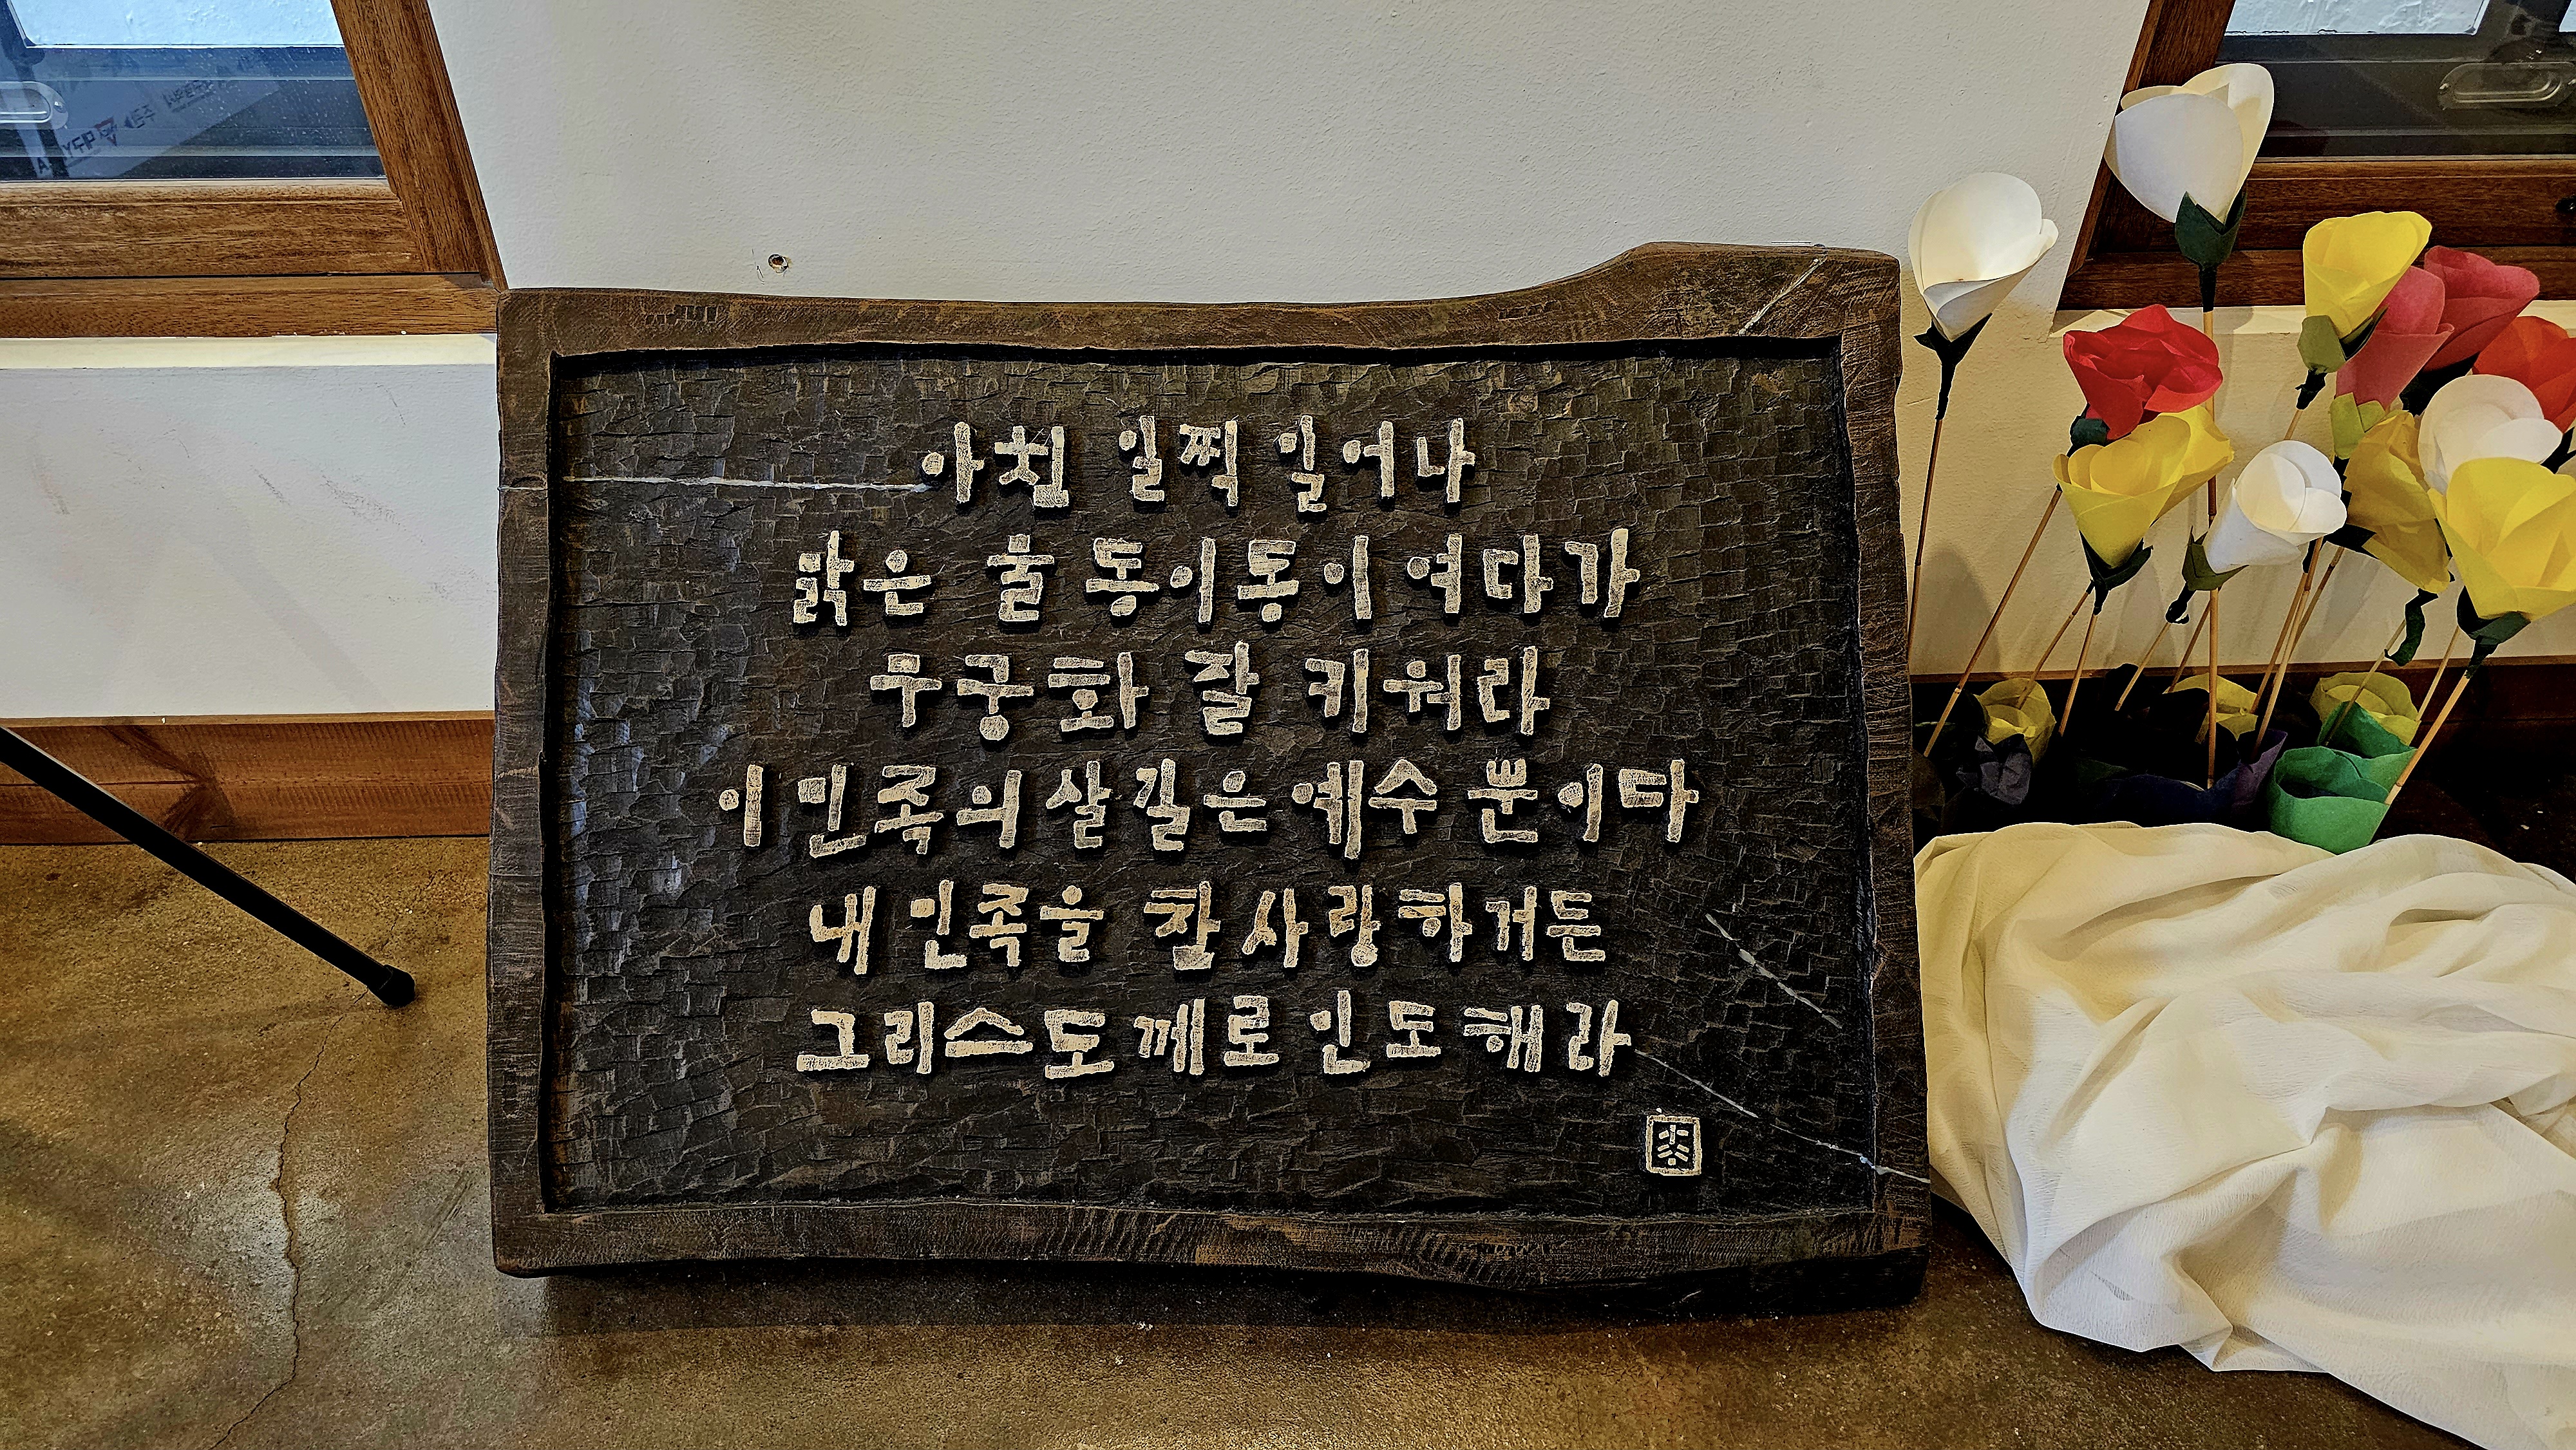 아침 일찍 일어나
맑은 물 동이동이 여다가
무궁화 잘 키워라
이 민족의 살길은 예수 뿐이다
내 민족을 참 사랑하거든
그리스도께로 인도해라